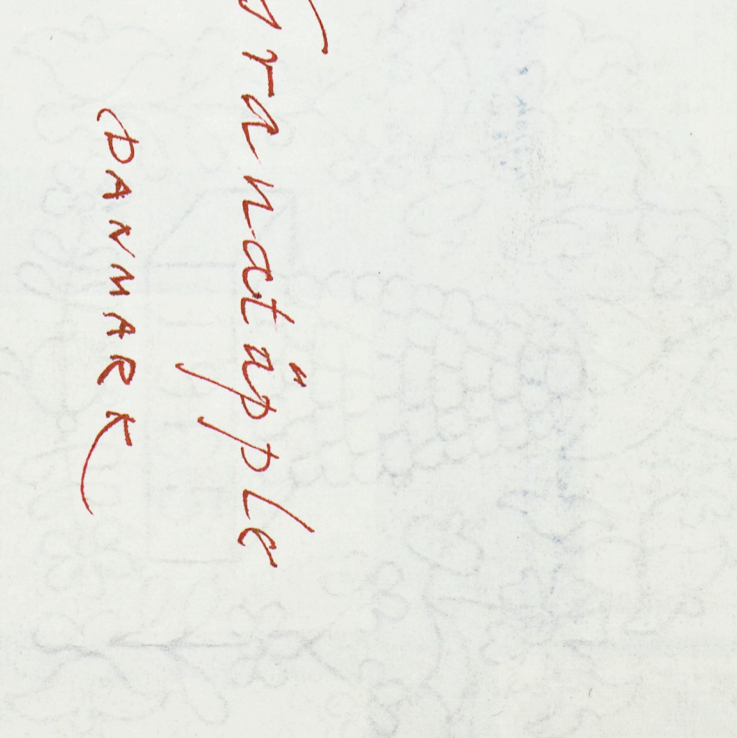 Granatäpple
DANMARK